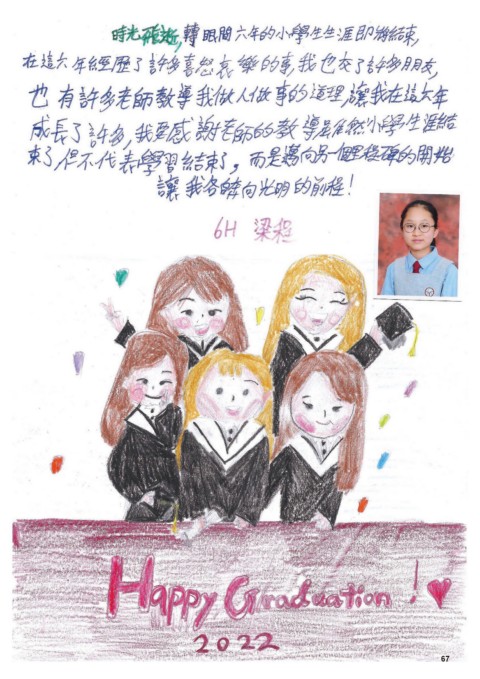 時光飛逝,轉眼間六年的小學生生涯即將結束,
在這六年經歷了許多喜怒哀樂的事,我也交了許多朋友,
也有許多老師教導我做人做事的道理,讓我在這六年
成長了許多,我要感謝老師的教導。雖然小學生涯結
束了,但不代表學習結束了,而是邁向另一個里程碑的開始
讓我各奔向光明的前程!
6H 梁程
Happy Graduation !
2022
67